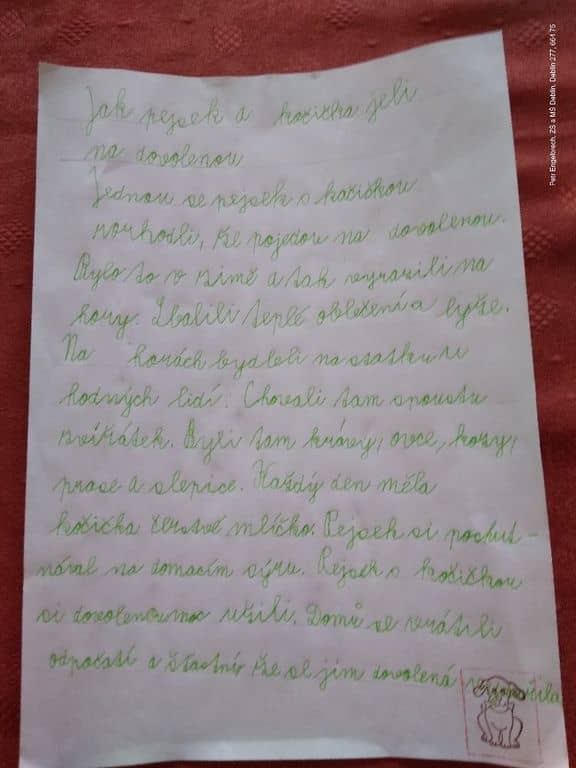 Jak pejsek a kočička jeli
na dovolenou
Jednou se pejsek s kočičkou
rozhodli, že pojedou na dovolenou.
Bylo to v zimě a tak vyrazili na
hory. Zbalili teplé oblečení a lyže.
Na horách bydleli na statku u
hodných lidí. Chovali tam spoustu
zvířátek. Byli tam krávy, ovce, kozy,
prase a slepice. Každý den měla
kočička čerstvé mlíčko. Pejsek si pochut-
nával na domacím sýru. Pejsek s kočičkou
si dovolenou moc užili. Domů se vrátili
odpočatí a šťastní že se jim dovolená vydařila
Petr Engelbrech, ZŠ a MŠ Deblín, Deblín 277, 664 75